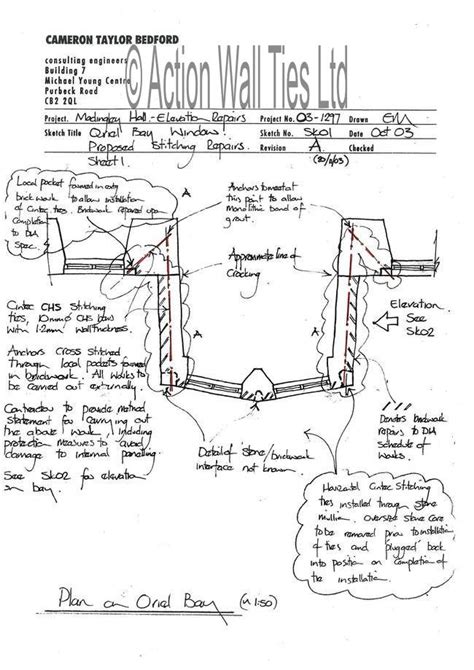 CAMERON TAYLOR BEDFORD
consulting engineers
Building 7
Michael Young Centre
Purbeck Road
CB2 2QL
© Action Wall Ties Ltd
Project. Madingley Hall - Elevation Repairs
Project No. 03-1297
Drawn EM
Sketch Title Oriel Bay Window:
Sketch No. SK01
Date Oct 03
Proposed Stitching Repairs.
Revision A
Checked
Sheet 1.
Local pocket formed in exty
brickwork to allow installation
of Cintec ties. Brickwork repaired upon
completion
to DLA
Spec.
A
Anchors to meet at
this point to allow
monolithic bond of
grout.
Approximate line of
Cracking
Cintec CHS Stitching
ties, 10mmØ CHS bars
with 1.2mm wall thickness.
Anchors Cross Stitched
through local pockets formed
in brickwork. All works to
be carried out externally.
Contractor to provide method
Statement for carrying out
the above work, including
protection measures to avoid
damage to internal panelling.
See SK02 for elevation
on bay.
A
A
Elevation
See
SK02
Denotes brickwork
repairs to DLA
Schedule of
Works.
Detail of Stone/brickwork
interface not known.
Horizontal Cintec Stitching
ties installed through stone
mullion. Oversize Stone Core
to be removed prior to installation
of ties and 'plugged' back
into position on completion of
the installation.
Plan on Oriel Bay (~1:50)